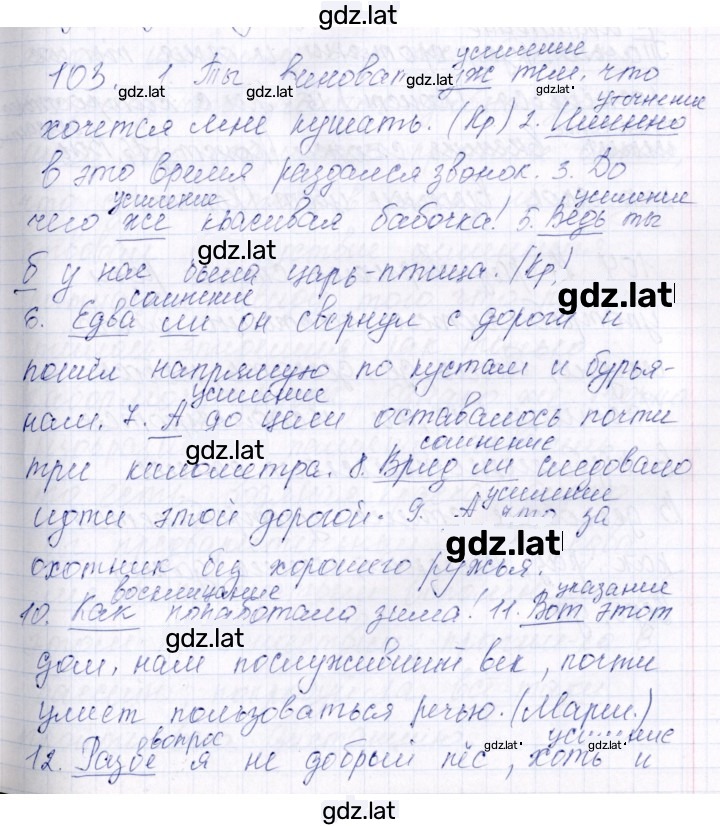 gdz.lat
усиление
103. 1. Ты виноват уж тем, что
gdz.lat gdz.lat gdz.lat
уточнение
хочется мне кушать. (Кр) 2. Именно
в это время раздался звонок. 3. До
усиление усиление
чего же красивая бабочка! 5. Ведь ты
gdz.lat
б у нас была царь-птица. (Кр.)
сомнение gdz.lat
6. Едва ли он свернул с дороги и
пошёл напрямую по кустам и бурья-
усиление
нам. 7. А до цели оставалось почти
gdz.lat сомнение
три километра. 8. Вряд ли следовало
усиление
идти этой дорогой. 9. А что за
gdz.lat
охотник без хорошего ружья.
восклицание указание
10. Как поработала зима! 11. Вот этот
gdz.lat
дом, нам послуживший век, почти
умеет пользоваться речью. (Марш.)
вопрос gdz.lat gdz.lat усиление
12. Разве я не добрый пёс, хоть и
gdz.lat